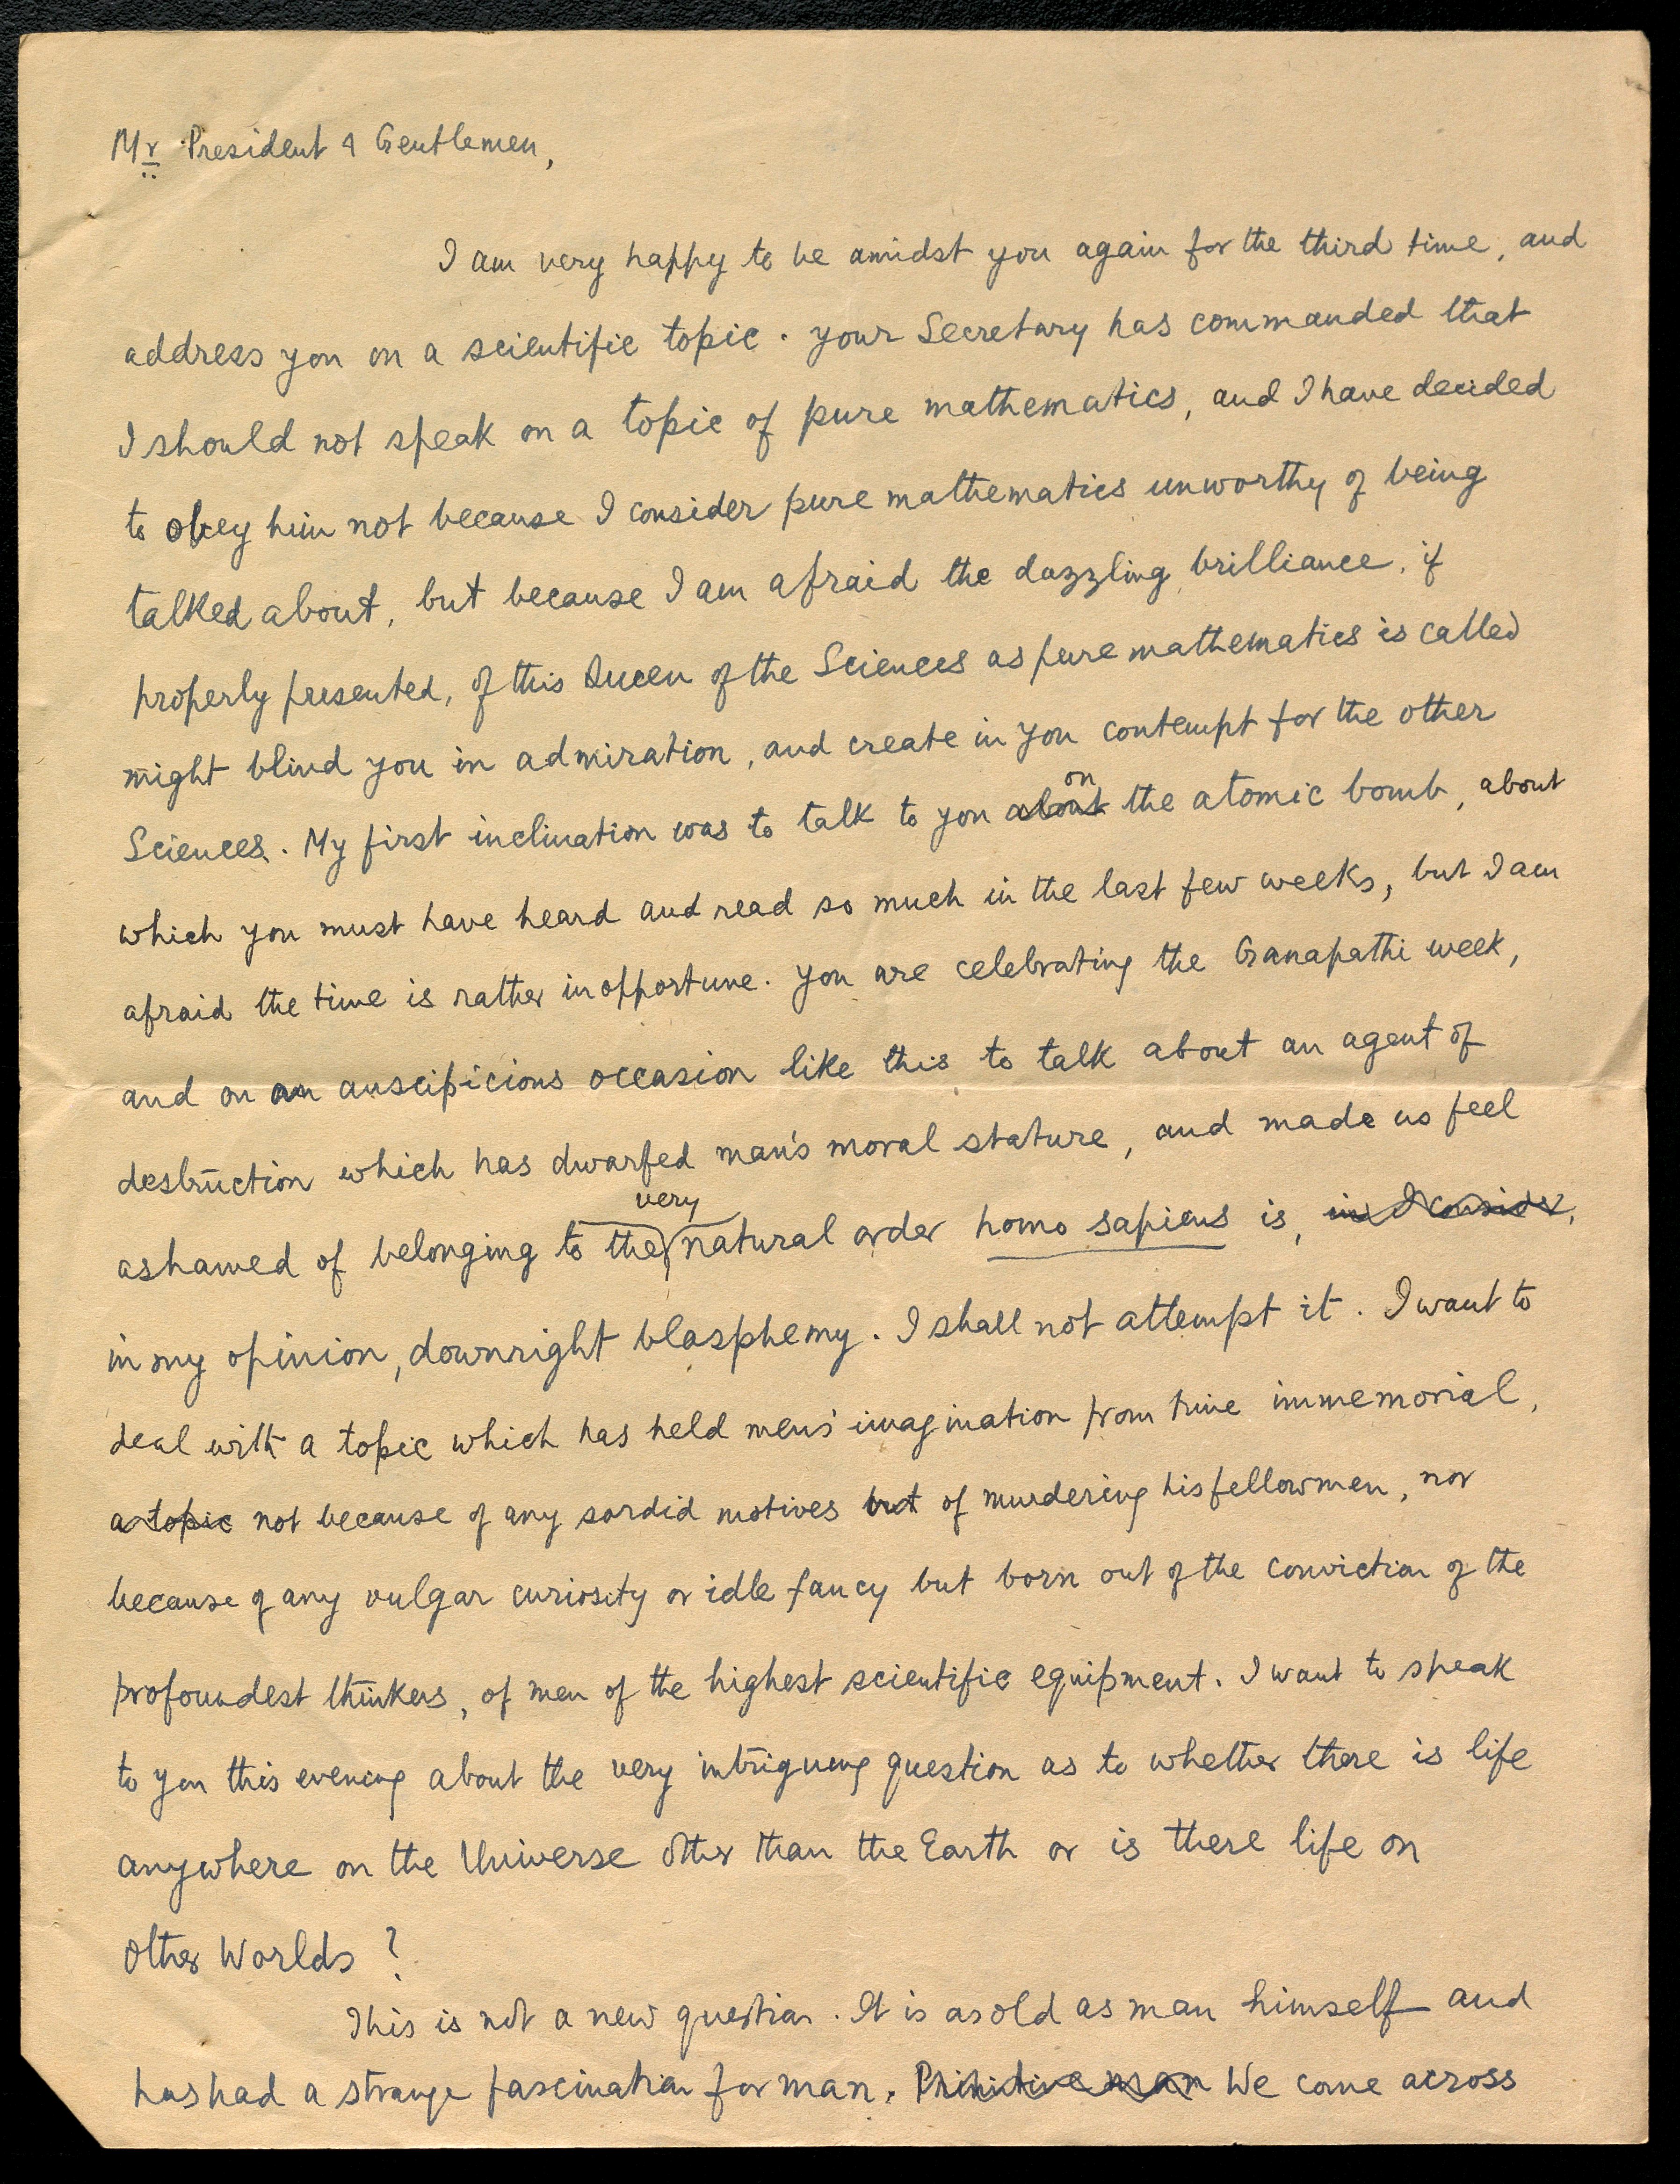 Mr President & Gentlemen,
I am very happy to be amidst you again for the third time, and
address you on a scientific topic. Your Secretary has commanded that
I should not speak on a topic of pure mathematics, and I have decided
to obey him not because I consider pure mathematics unworthy of being
talked about, but because I am afraid the dazzling brilliance, if
properly presented, of this Queen of the Sciences as pure mathematics is called
might blind you in admiration, and create in you contempt for the other
Sciences. My first inclination was to talk to you about on the atomic bomb, about
which you must have heard and read so much in the last few weeks, but I am
afraid the time is rather inopportune. You are celebrating the Ganapathi week,
and on an auscipicious occasion like this to talk about an agent of
destruction which has dwarfed man's moral stature, and made us feel
ashamed of belonging to the very natural order homo sapiens is, in I consider,
in my opinion, downright blasphemy. I shall not attempt it. I want to
deal with a topic which has held men's imagination from time immemorial,
a topic not because of any sordid motives but of murdering his fellowmen, nor
because of any vulgar curiosity or idle fancy but born out of the conviction of the
profoundest thinkers, of men of the highest scientific equipment. I want to speak
to you this evening about the very intriguing question as to whether there is life
anywhere on the Universe other than the Earth or is there life on
Other Worlds?
This is not a new question. It is as old as man himself and
has had a strange fascination for man. Primitive man We come across